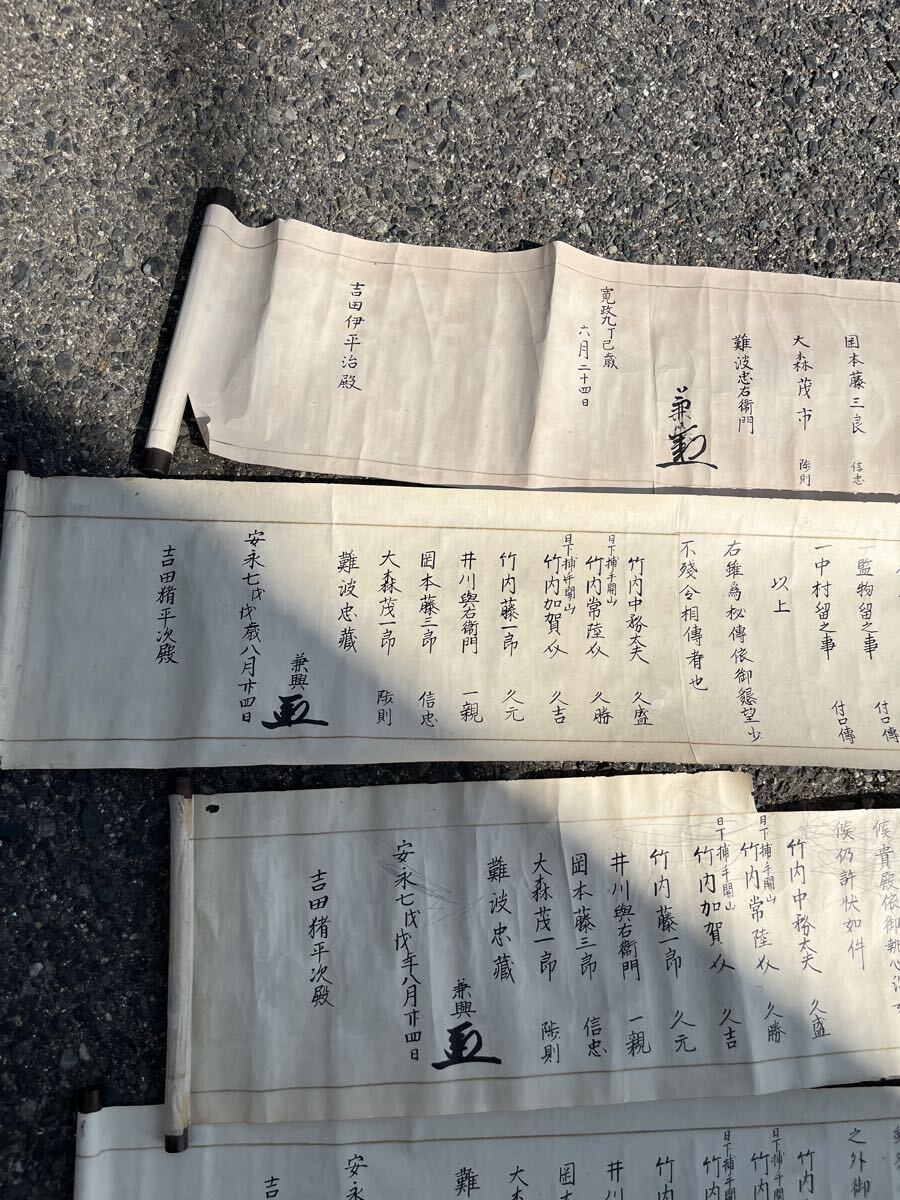 岡本藤三良 信忠
大森茂市 陟則
難波忠右衛門
兼
寛政九丁巳歳
六月二十四日
吉田伊平治殿
監物留之事 付口傳
一中村留之事 付口傳
以上
右雖為秘傳依御懇望少
不残令相傳者也
竹内中務太夫 久盛
日下捕手開山
竹内常陸介 久勝
日下捕手開山
竹内加賀介 久吉
竹内藤一郎 久元
井川與右衛門 一親
岡本藤三郎 信忠
大森茂一郎 陟則
難波忠藏
兼興
安永七戊戌歳八月廿四日
吉田猪平次殿
候貴殿依御執心
候仍許状如件
竹内中務太夫 久盛
日下捕手開山
竹内常陸介 久勝
日下捕手開山
竹内加賀介 久吉
竹内藤一郎 久元
井川與右衛門 一親
岡本藤三郎 信忠
大森茂一郎 陟則
難波忠藏
兼興
安永七戊戌年八月廿四日
吉田猪平次殿
之外御
竹内
日下捕手
竹内
日下捕手
竹内
竹内
井川
岡本
大
難
安永
吉